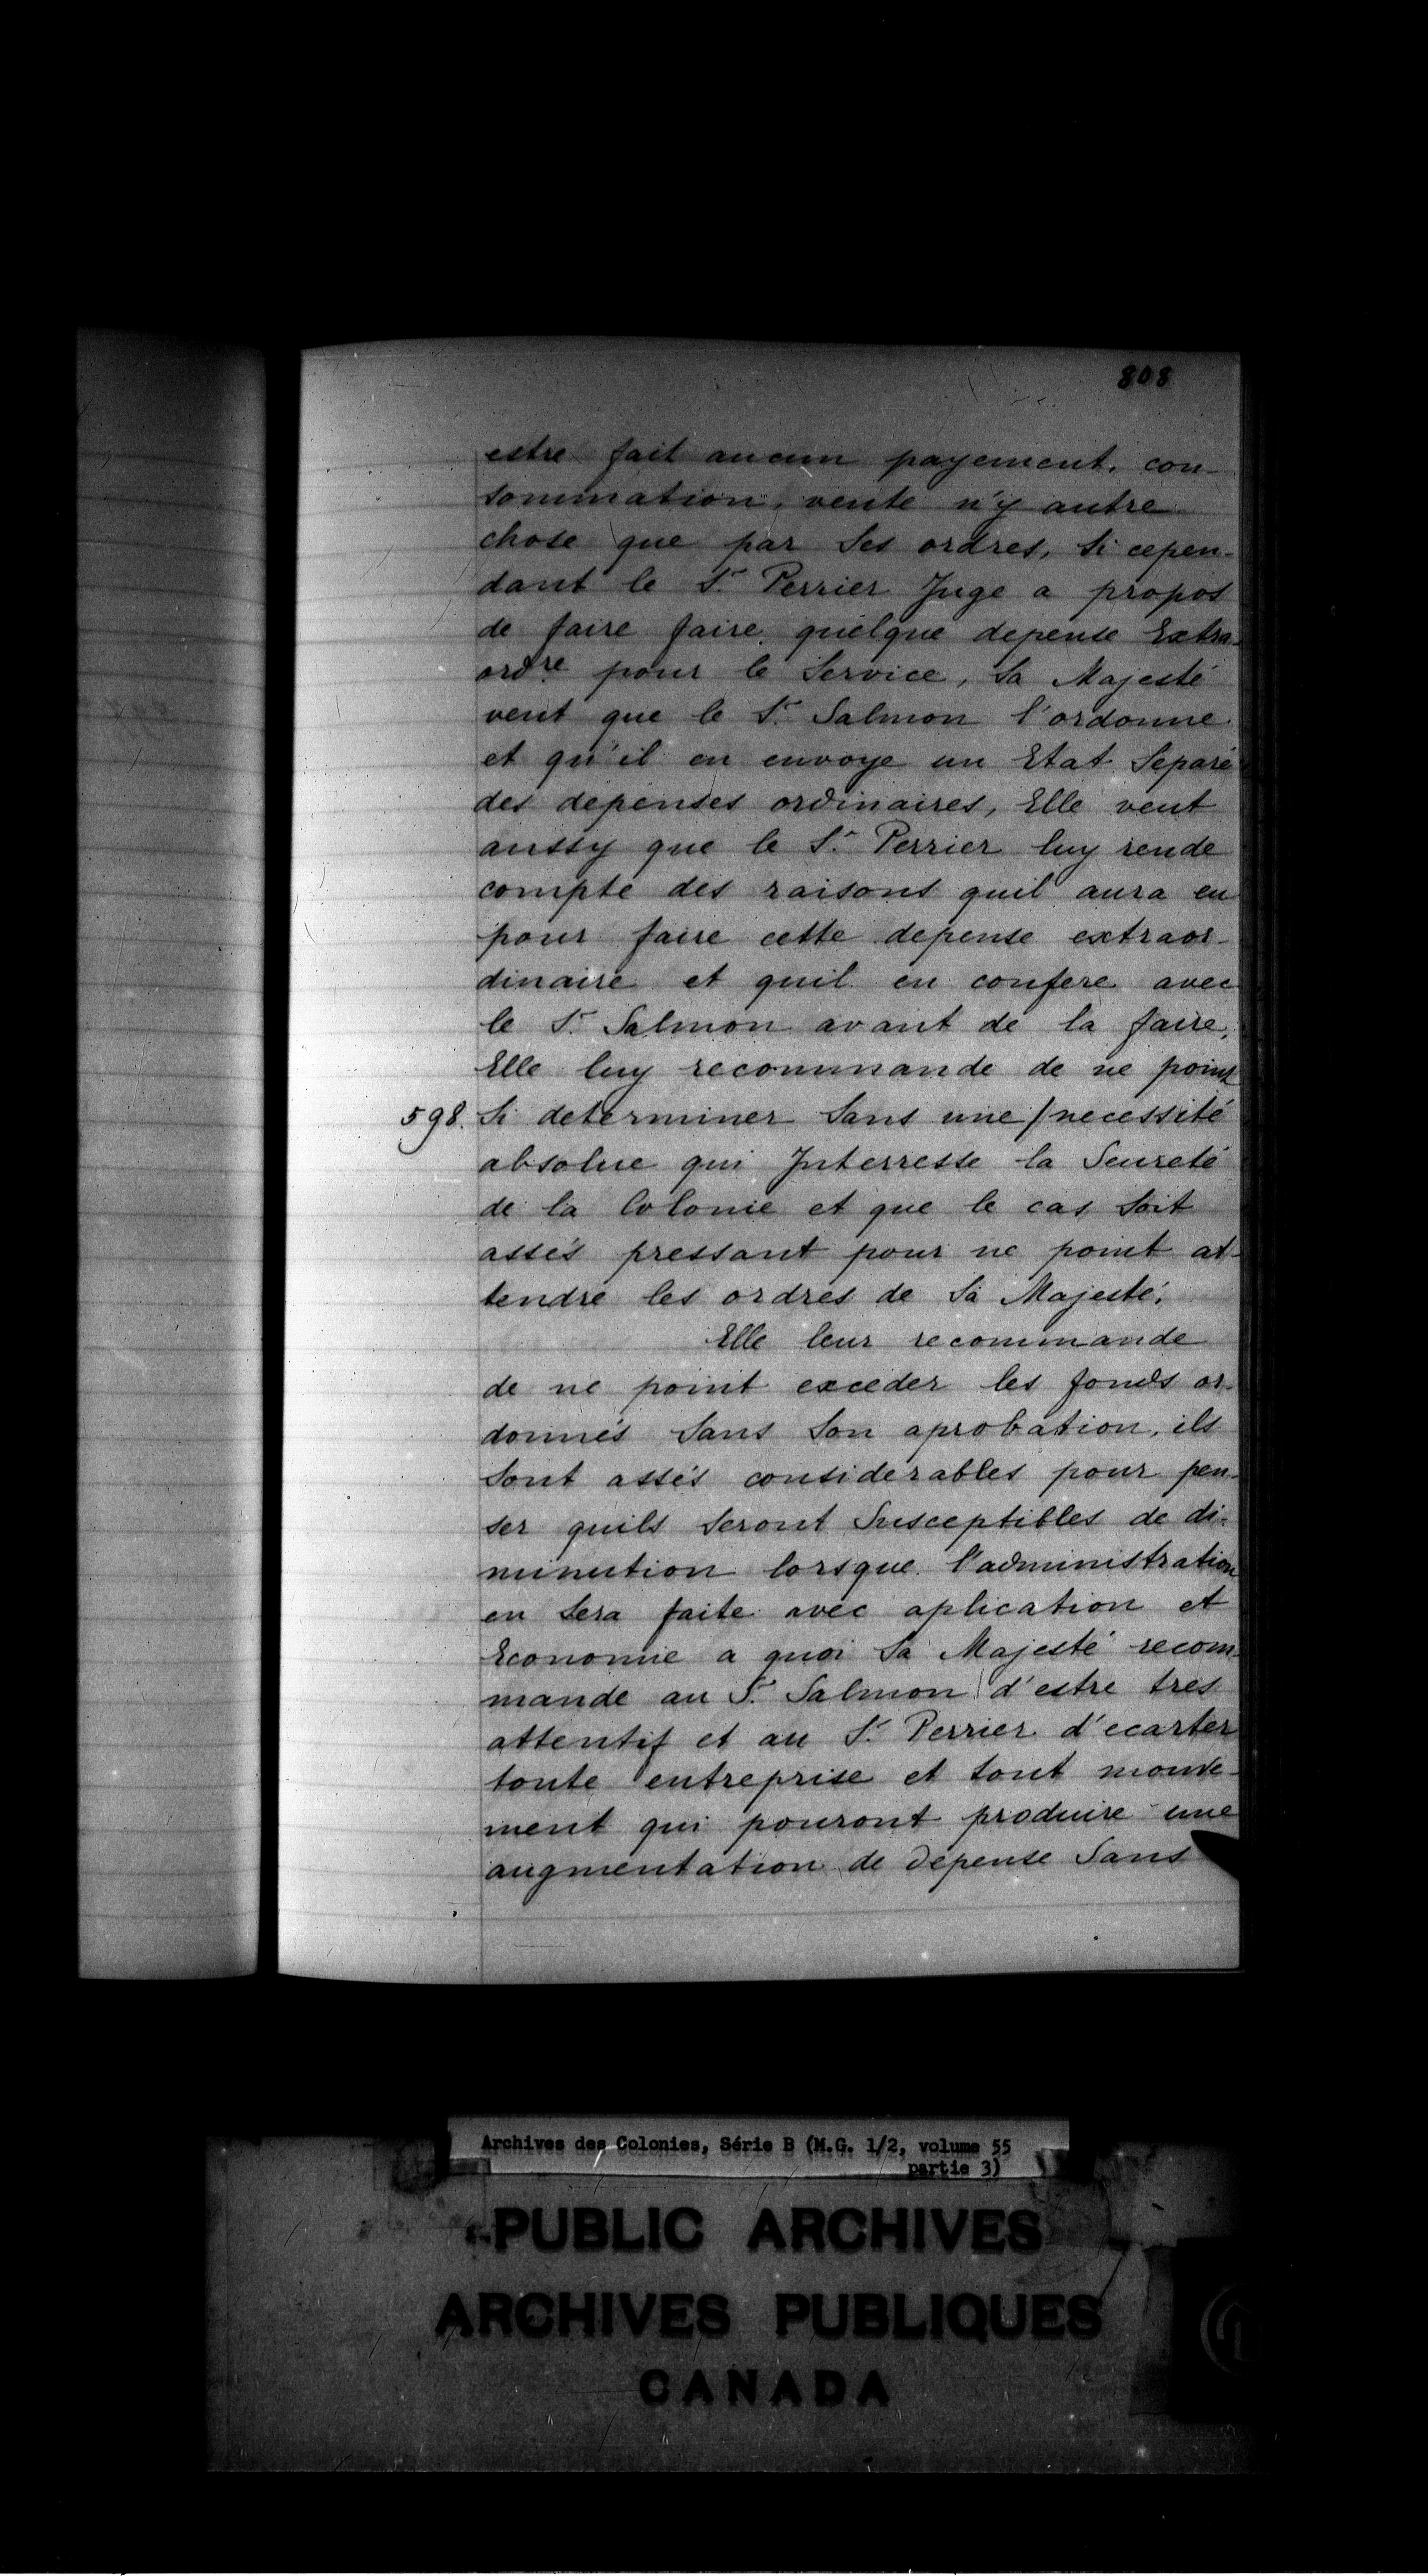 808
estre fait aucun payement, con-
sommation, vente n'y autre
chose que par Ses ordres, Si cepen-
dant le Sr. Perrier Juge a propos
de faire faire quelque depense Extra-
ordre pour le Service, Sa Majesté
veut que le Sr. Salmon l'ordonne
et qu'il en envoye un Etat Separé
des depenses ordinaires, Elle veut
aussy que le Sr. Perrier luy rende
compte des raisons quil aura eu
pour faire cette depense extraor-
dinaire et quil en confere avec
le Sr. Salmon avant de la faire,
Elle luy recommande de ne point
598. Si determiner Sans une / necessité
absolue qui Interresse la Seureté
de la Colonie et que le cas Soit
assés pressant pour ne point at-
tendre les ordres de Sa Majesté.
Elle leur recommande
de ne point exceder les fonds or-
donnés Sans Son aprobation, ils
Sont assés considerables pour pen-
ser quils Seront Susceptibles de di-
minution lorsque l'administration
en Sera faite avec aplication et
Economie a quoi Sa Majesté recom-
mande au Sr. Salmon d'estre tres
attentif et au Sr. Perrier d'ecarter
toute entreprise et tout mouve-
ment qui pouront produire une
augmentation de depense Sans
Archives des Colonies, Série B (M.G. 1/2, volume 55
partie 3)
PUBLIC ARCHIVES
ARCHIVES PUBLIQUES
CANADA